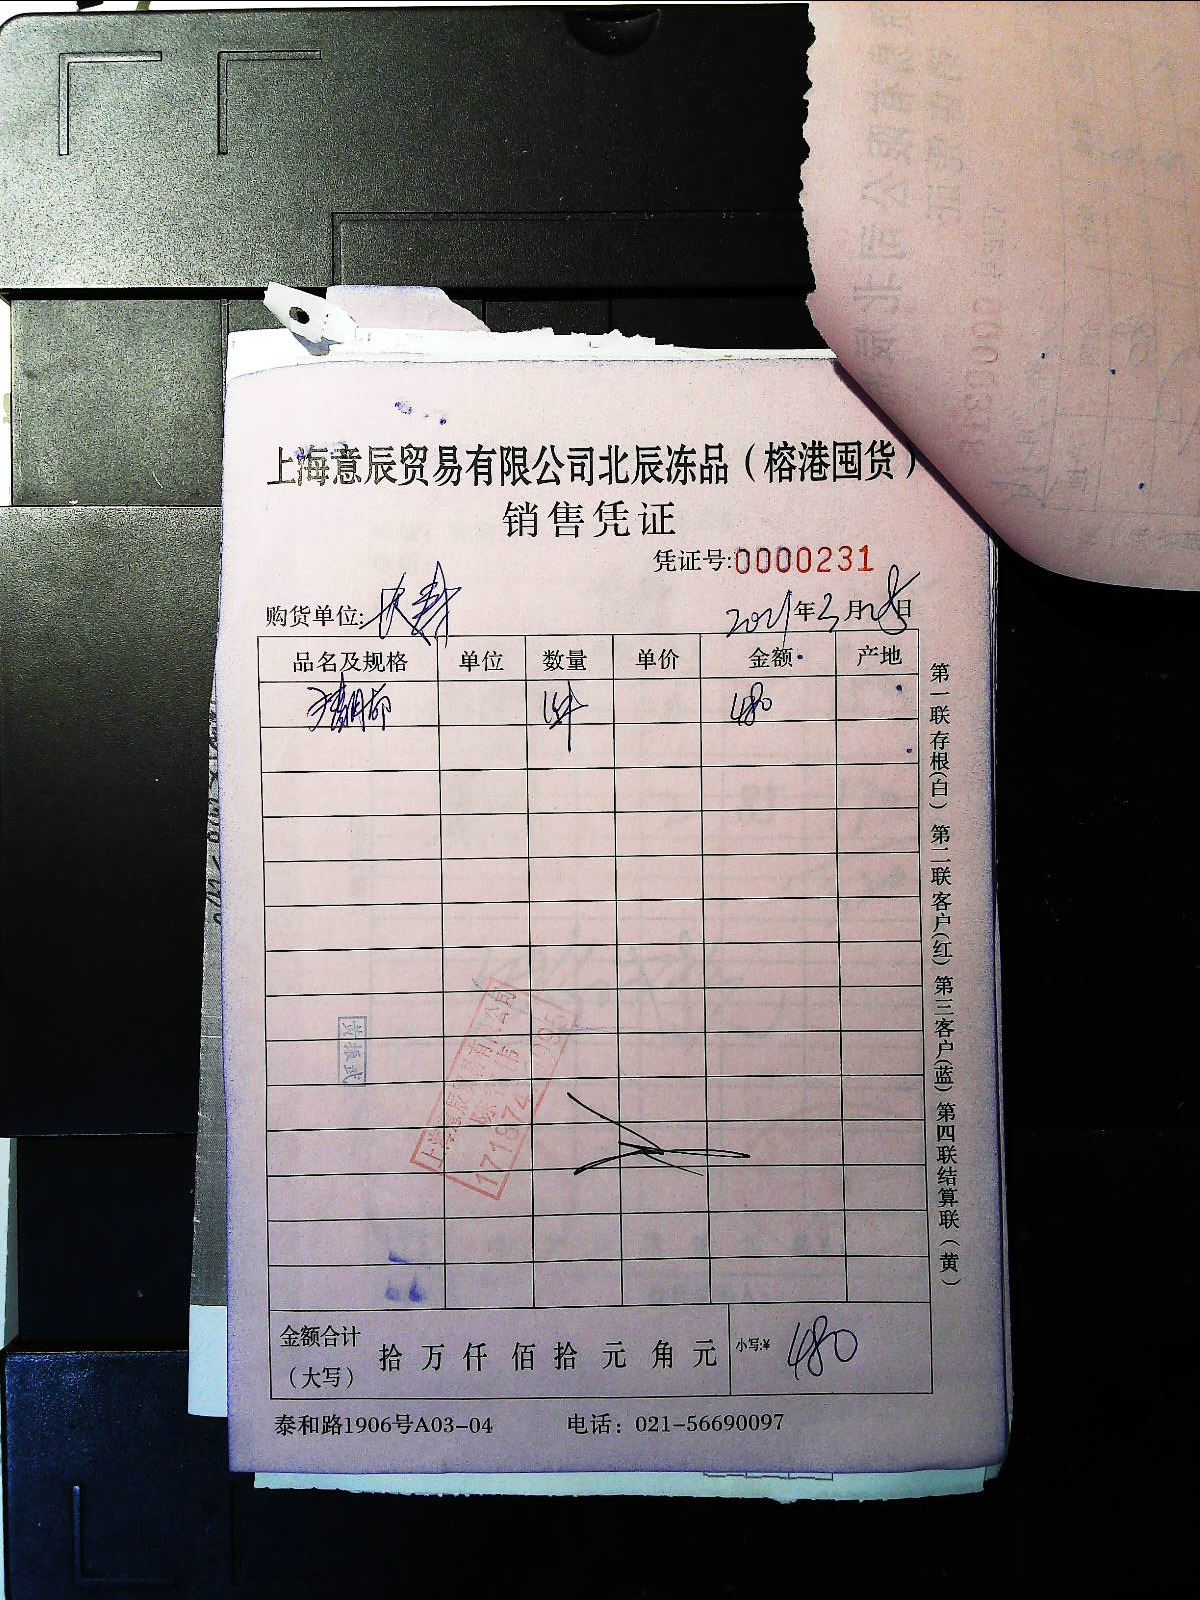 上海意辰贸易有限公司北辰冻品（榕港囤货）
销售凭证
凭证号:0000231
购货单位:
2021年3月28日
品名及规格 单位 数量 单价 金额 产地
1件 480
第一联存根(白) 第二联客户(红) 第三客户(蓝) 第四联结算联(黄)
上海意辰贸易有限公司
金额合计（大写） 拾 万 仟 佰 拾 元 角 元 小写:¥ 480
泰和路1906号A03-04 电话：021-56690097